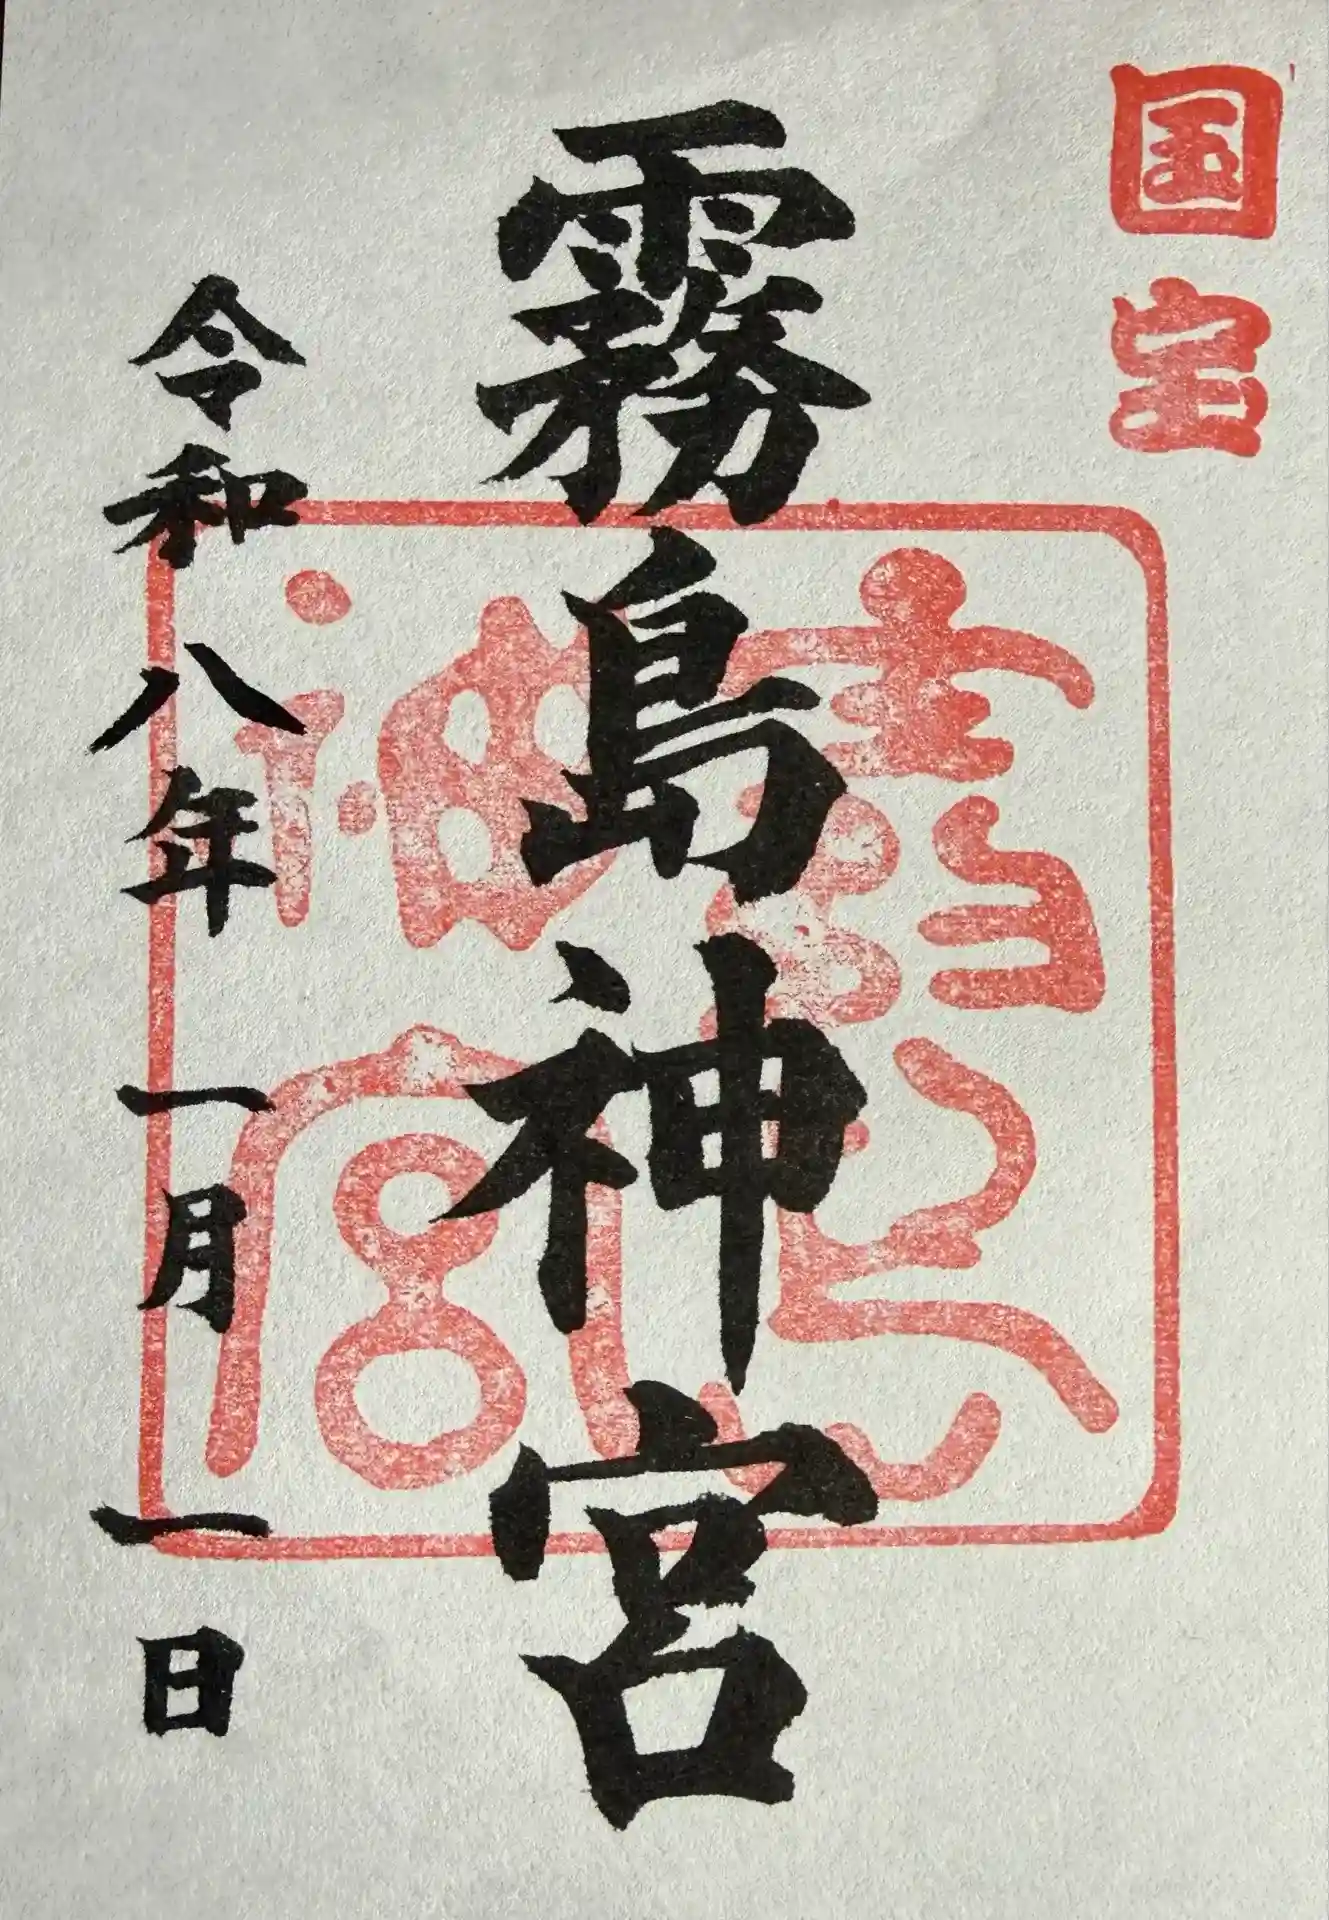 国宝
霧島神宮
霧島神宮
令和八年一月一日